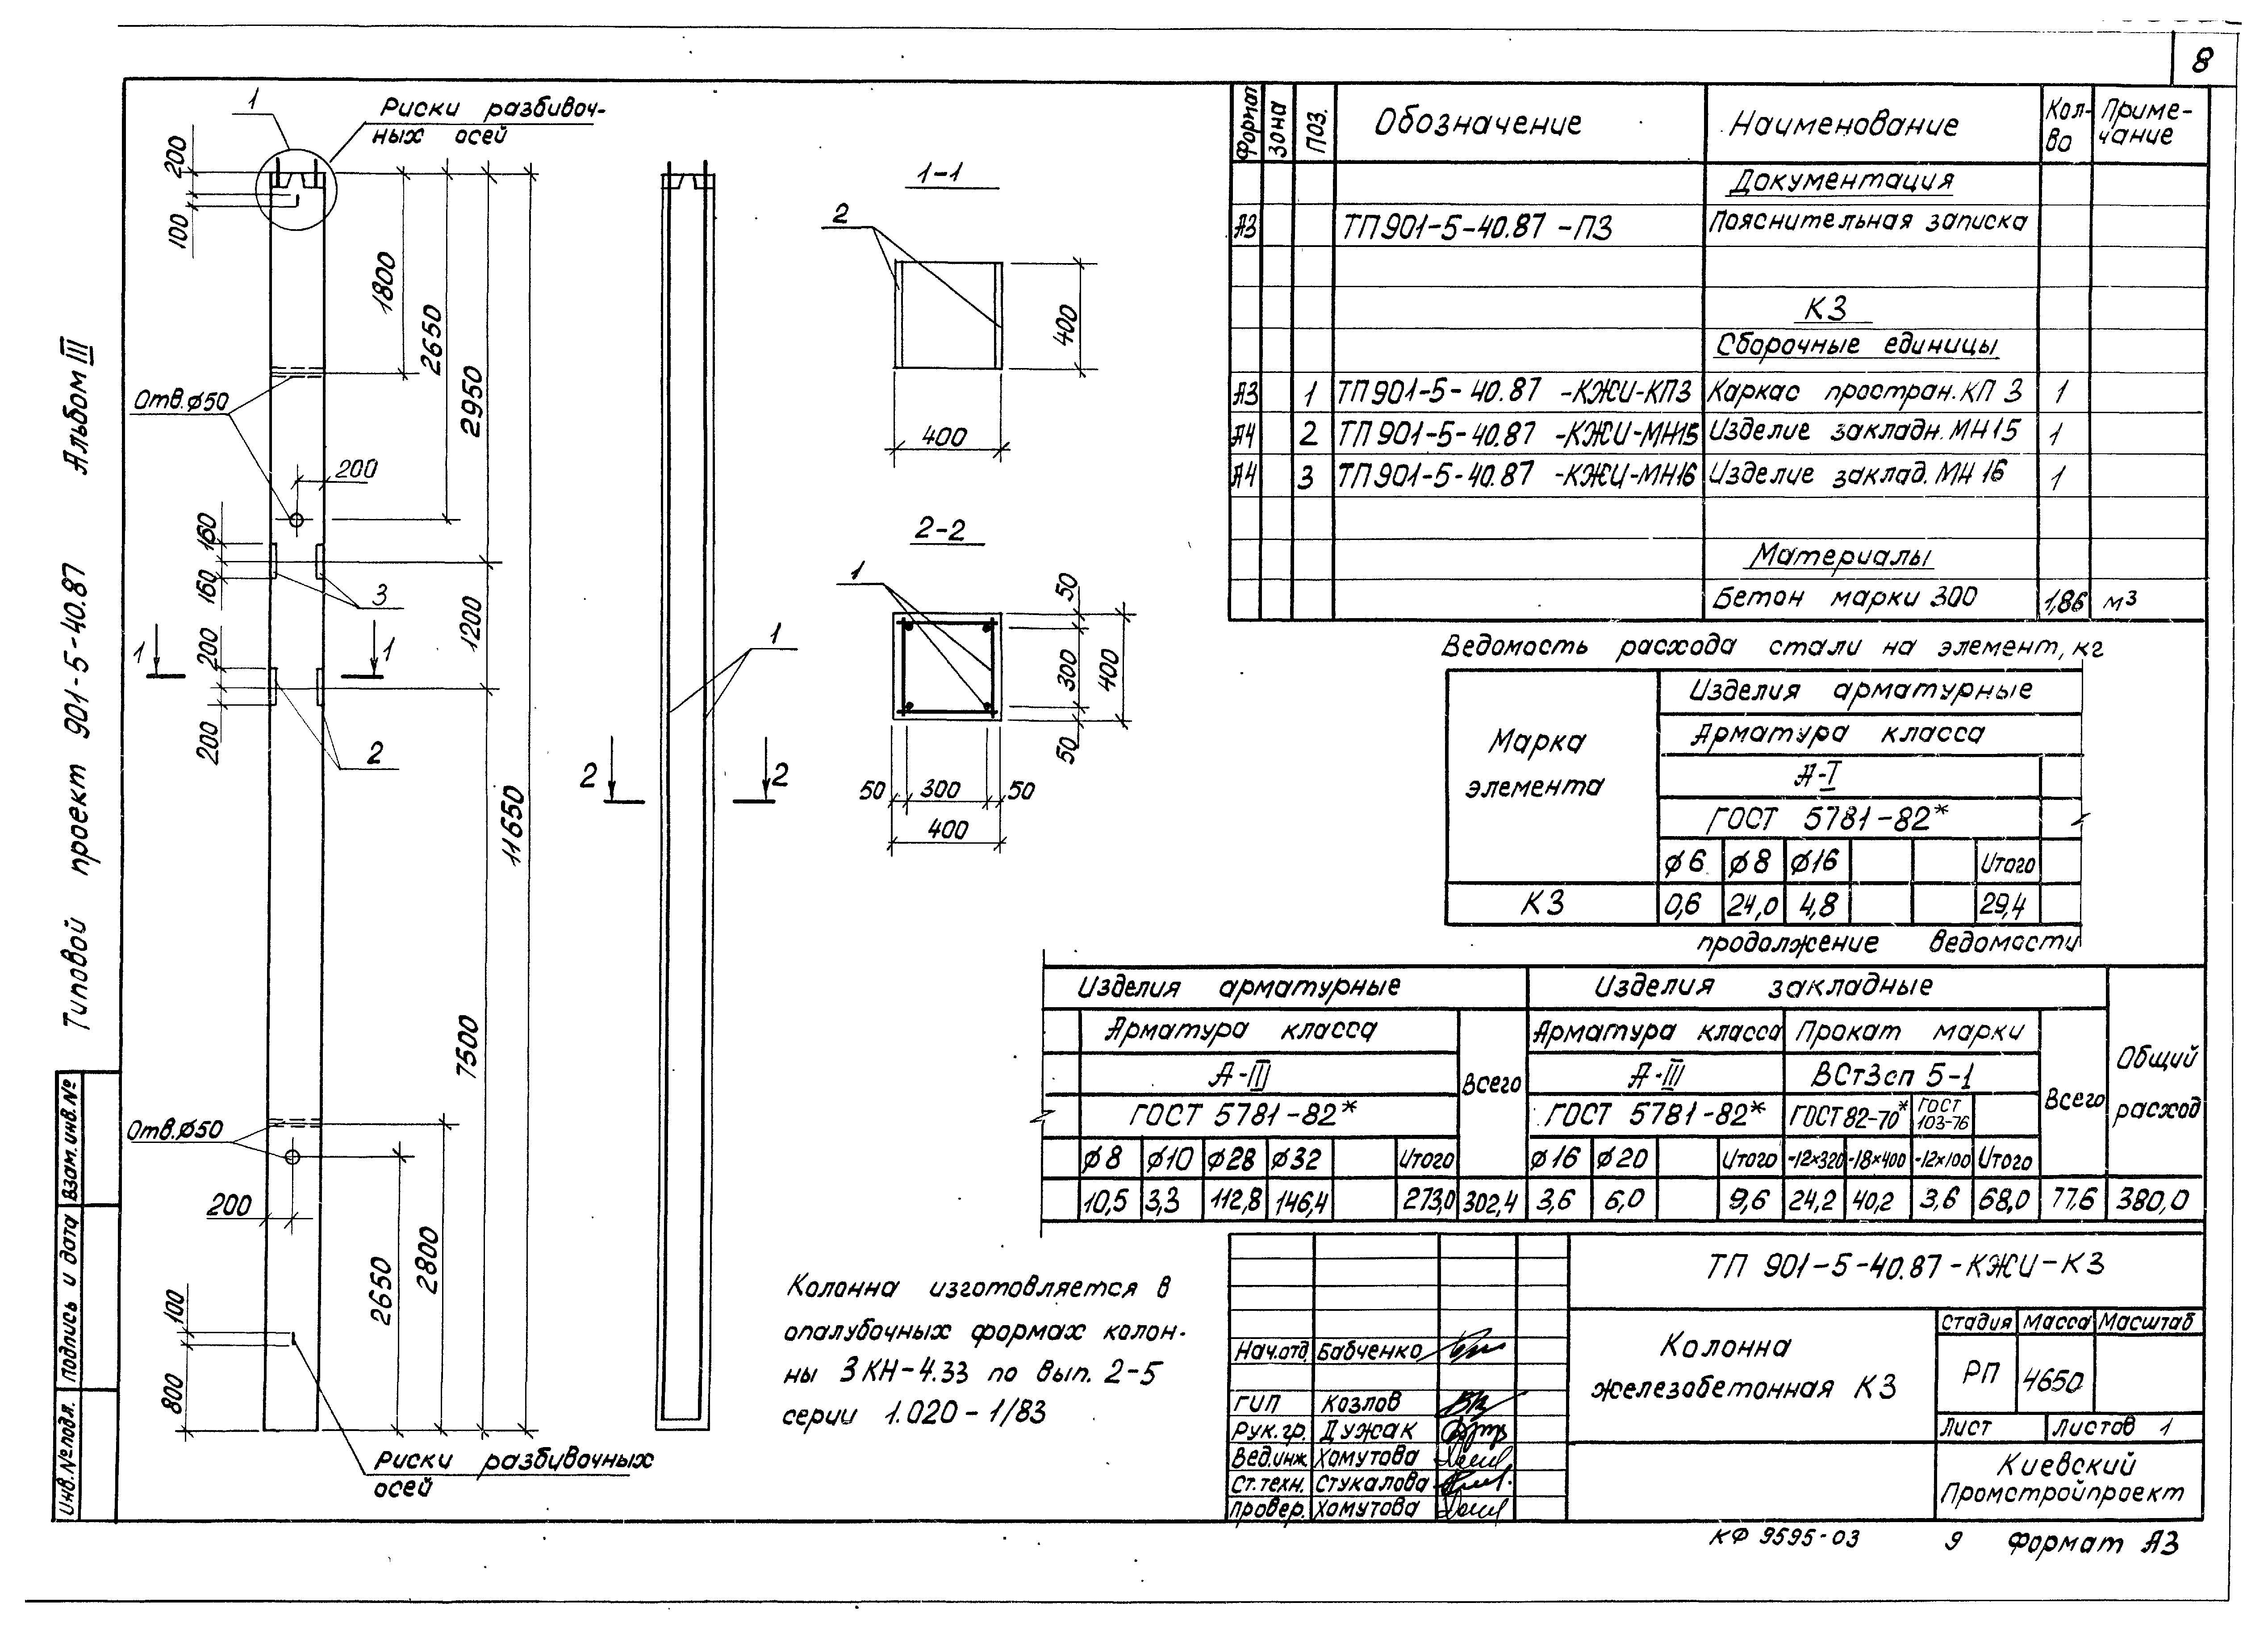 8
Типовой проект 901-5-40.87 Альбом III
Взам.инв.№
Подпись и дата
Инв.№ подл.
1
Риски разбивоч-
ных осей
200
100
1800
2650
2950
Отв.ø50
200
160
160
3
1200
1 1
200
200
2
11650
7500
Отв.ø50
200
2650
2800
100
800
Риски разбивочных
осей
1
2 2
1-1
2
400
400
2-2
1
50
300
50
400
50 300 50
400
Колонна изготовляется в
опалубочных формах колон-
ны 3КН-4.33 по вып. 2-5
серии 1.020-1/83
Формат Зона Поз. Обозначение Наименование Кол-во Приме-чание
Документация
А3 ТП901-5-40.87 -ПЗ Пояснительная записка
К3
Сборочные единицы
А3 1 ТП901-5-40.87 -КЖИ-КП3 Каркас простран.КП 3 1
А4 2 ТП901-5-40.87 -КЖИ-МН15 Изделие закладн.МН15 1
А4 3 ТП901-5-40.87 -КЖИ-МН16 Изделие заклад.МН 16 1
Материалы
Бетон марки 300 1,86 м3
Ведомость расхода стали на элемент, кг
Марка
элемента
Изделия арматурные
Арматура класса
А-I
ГОСТ 5781-82*
ø6 ø8 ø16 Итого
К3 0,6 24,0 4,8 29,4
продолжение ведомости
Изделия арматурные Изделия закладные Общий расход
Арматура класса Всего Арматура класса Прокат марки Всего
А-III А-III ВСт3сп 5-1
ГОСТ 5781-82* ГОСТ 5781-82* ГОСТ 82-70* ГОСТ 103-76
ø8 ø10 ø28 ø32 Итого ø16 ø20 Итого -12×320 -18×400 -12×100 Итого
10,5 3,3 112,8 146,4 273,0 302,4 3,6 6,0 9,6 24,2 40,2 3,6 68,0 77,6 380,0
ТП 901-5-40.87-КЖИ-К3
Нач.отд. Бабченко
ГИП Козлов
Рук.гр. Дужак
Вед.инж. Хомутова
Ст.техн. Стукалова
Провер. Хомутова
Колонна
железобетонная К3
Стадия Масса Масштаб
РП 4650
Лист Листов 1
Киевский
Промстройпроект
КФ 9595-03 9 Формат А3